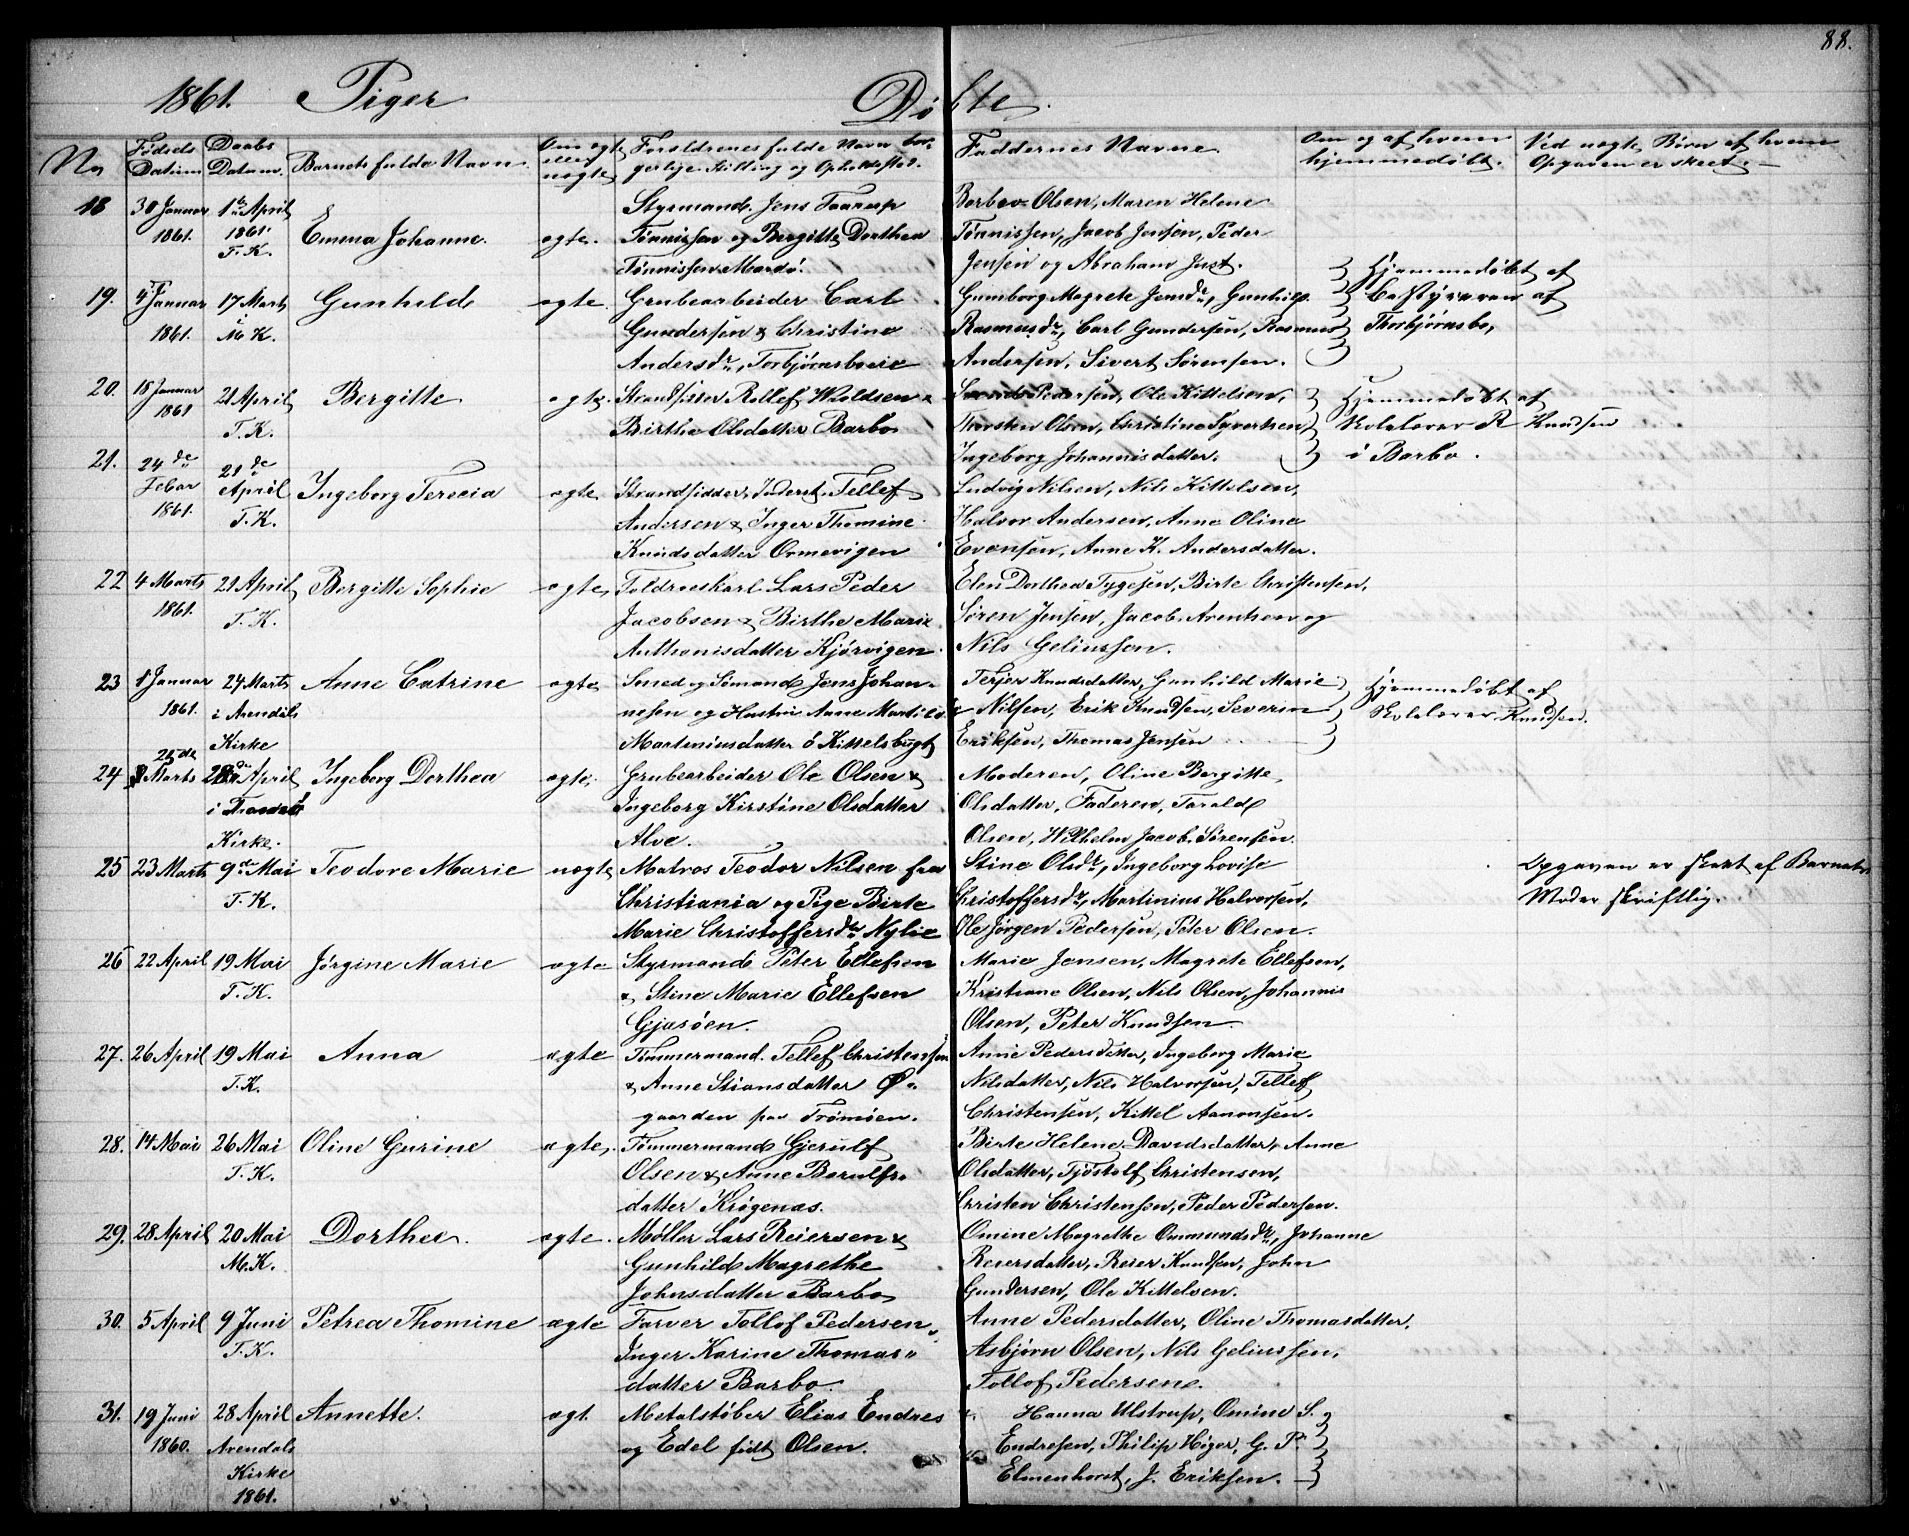 88.
1861. Piger Døbte.
No
Fødsels Datum
Daabs Datum.
Barnets fulde Navn.
Om ægte eller uægte
Forældrenes fulde Navn borgerlige Stilling og Opholdssted.
Faddernes Navne
Om og af hvem hjemmedøbt.
Ved uægte Børn af hvem Opgaven er skeet.
18 30 Januar 1ste April Styrmand Jens Taarup Barbro Olsen, Maren Helene
1861. 1861. Emma Johanne. ægte. Tønnissen og Bergitte Dorthea Tønnissen, Jacob Jensen, Peder
T. K. Tønnissen Mærdø. Jensen og Abraham Just.
19. 4 Januar 17 Marts Gunhild ægte. Grubearbeider Carl Gunborg Magrete Jensdr, Gunhild Hjemmedøbt af
1861. i M. K. Gundersen & Christine Rasmusdr, Carl Gundersen, Rasmus Bestyreren af
Andersdr, Torbjørnsboeie Andersen, Sivert Sørensen. Thorbjørnsbo,
20. 18 Januar 21 April Bergitte ægte. Strandsidder Rollef Woldsen & Pedersen, Ole Kittelsen, Hjemmedøbt af
1861 T. K. Birthe Olsdatter Barbo Thorsten Olsen, Christine Syvertsen, Skolelærer R Knudsen
Ingeborg Johannisdatter. i Barbo.
21. 24de Febar 21de April Ingeborg Terecia ægte Strandsidder, Inderst. Tellef Ludvig Nilsen, Nils Kittelsen,
1861. T. K. Andersen & Inger Thomine Halvor Andersen, Anne Oline
Knudsdatter Ormevigen Evensen, Anne K. Andersdatter.
22 4 Marts 21 April Bergitte Sophie ægte, Toldroeskarl Lars Peder Elen Dorthea Tygesen, Birte Christensen,
1861. T. K. Jacobsen & Birthe Marie Søren Jensen, Jacob Arentsen og
Anthonisdatter Kjørvigen Nils Geliussen.
23 8 Januar 24 Marts Anne Catrine ægte Smed og Sømand Jens Johan- Terjer Knudsdatter, Gunhild Marie Hjemmedøbt af
1861. i Arendals nesen og Hustru Anne Nilsen, Erik Knudsen, Severin Skolelærer Knudsen.
Kirke Marteniusdatter ø Kittelsbugt Eriksen, Thomas Jensen
24 25de Marts 28de April Ingeborg Dorthea ægte. Grubearbeider Ole Olsen & Moderen, Oline Bergitte
i Ingeborg Kirstine Olsdatter Olsdatter, Faderen, Tarald
Kirke. Alve. Olsen, Wilhelm Jacob Sørensen.
25 23 Marts 9de Mai Teodore Marie uægte Matros Teodor Nilsen fra Stine Olsdr, Ingeborg Lovise Opgaven er skeet af Barnets
T. K. Christiania og Pige Birte Christoffersdr, Martinius Halvorsen, Moder skriftlig.
Marie Christoffersdr Nylie Ole Jørgen Pedersen, Peter Olsen.
26 22 April 19 Mai Jørgine Marie ægte Styrmand Peter Ellefsen Marie Jensen, Magrete Ellefsen,
T. K. & Stine Marie Ellefsen Kristiane Olsen, Nils Olsen, Johannis
Gjæsøen. Olsen, Peter Knudsen
27. 26 April 19 Mai Anna ægte Tømmermand. Tellef Christensen Anne Pedersdatter, Ingeborg Marie
T. K. & Anne Stiansdatter Ø- Nilsdatter, Nils Halvorsen, Tellef
gaarden paa Tromøen. Christensen, Kittel Aanonsen.
28. 14 Mai 26 Mai Oline Gurine ægte. Tømmermand Gjerulf Birte Helene Davidsdatter, Anne
T. K. Olsen & Anne Berulfs- Olsdatter, Tjøstolf Christensen,
datter Krøgenæs. Christen Christensen, Peder Pedersen.
29. 28 April 20 Mai Dorthea. ægte. Møller Lars Reiersen & Omine Magrethe Ommundsdr, Johanne
M. K. Gunhild Magrethe Reiersdatter, Reier Knudsen, John
Johnsdatter Barbo Gundersen, Ole Kittelsen.
30. 5 April 9 Juni Petrea Thomine ægte Farver Tollof Pedersen Anne Pedersdatter, Oline Thomasdatter,
T. K. Inger Karine Thomas- Asbjørn Olsen, Nils Geliussen,
datter Barbo. Tollof Pedersen.
31. 19 Juni 28 April Annette. ægt. Metalstøber Elias Endres Hanna Ulstrup, Omine S.
1860. Arendals og Edel født Olsen. Endresen, Philip Høyer, G. P.
Kirke Elmenhorst, J. Eriksen.
1861.